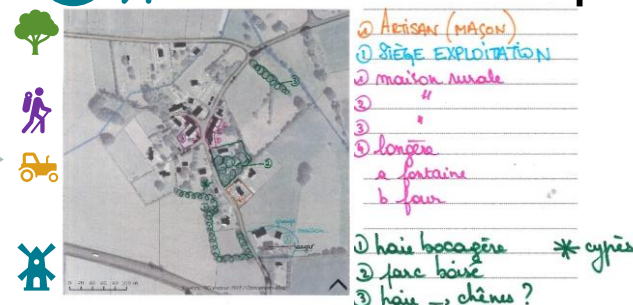 ① ARTISAN (MAÇON)
① SIÈGE EXPLOITATION
① maison rurale
② "
③ "
④ longère
a fontaine
b four
① haie bocagère * cyprès
② parc boisé
③ haie _, chênes ?
③
②
maison
0 20 40 60 80 100 m